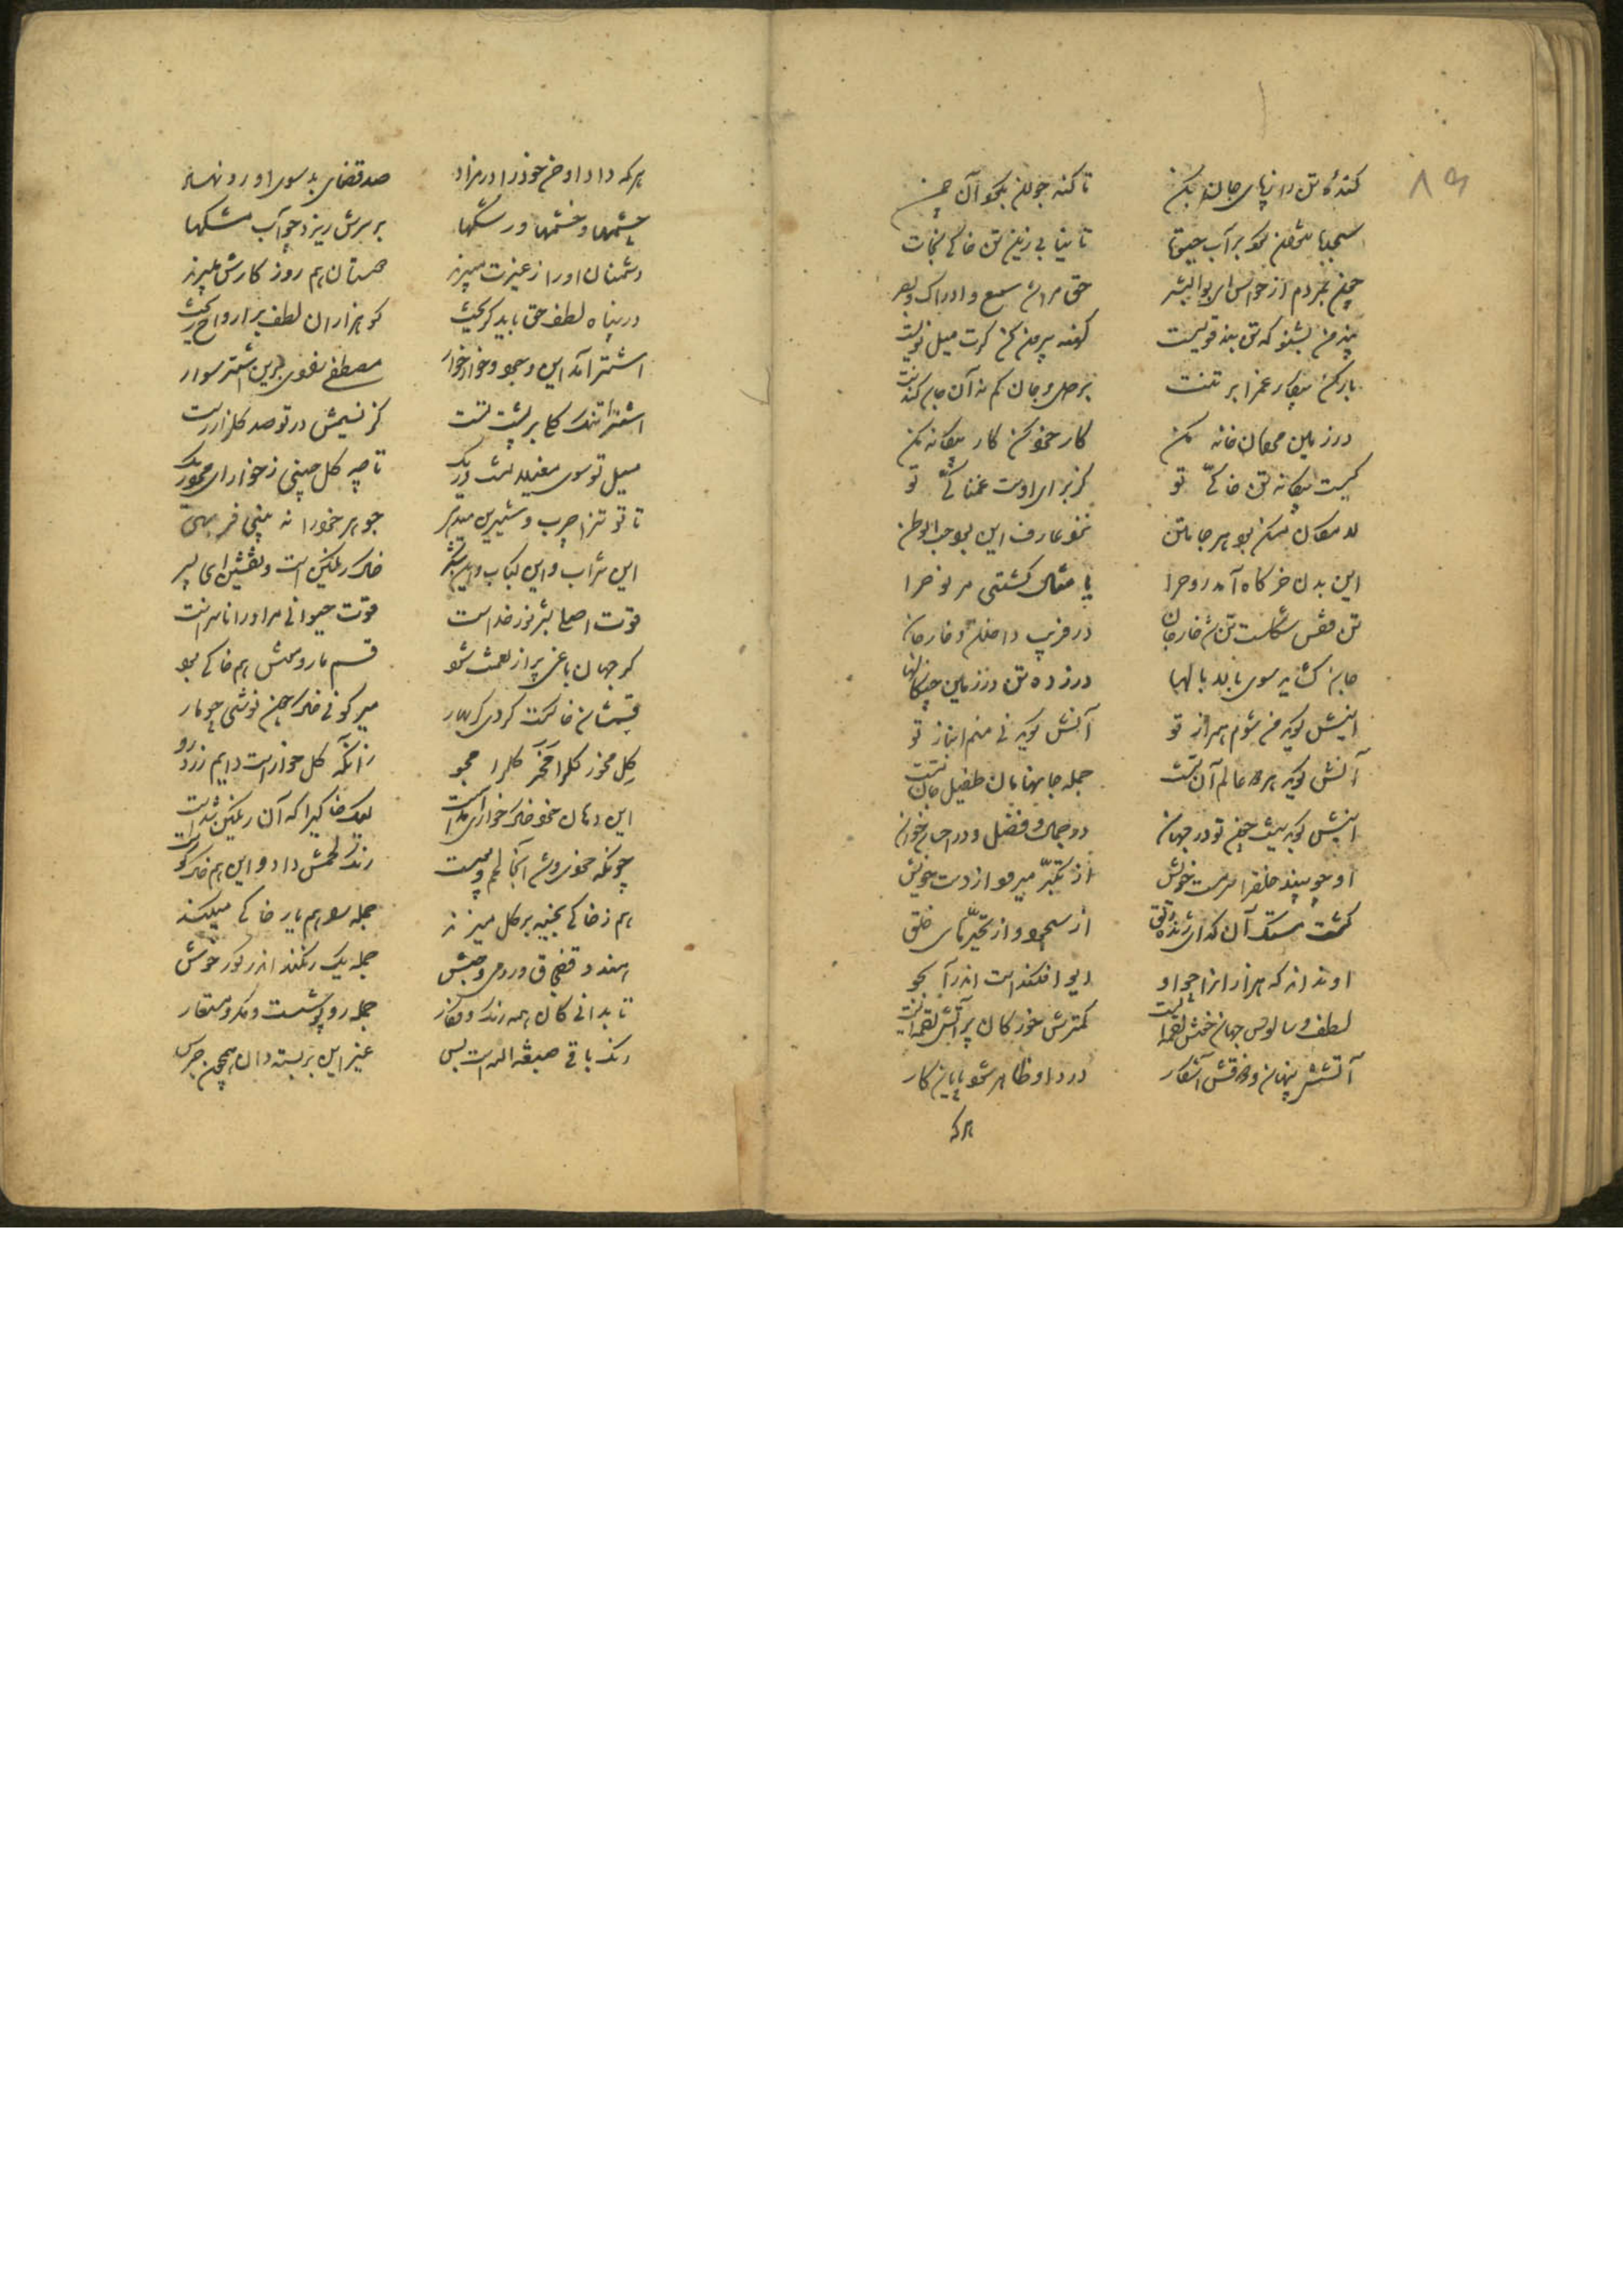 ۸۹
کندهٔ تن را ز پای جان بکن تا کند جولان بکو آن چمن
تا نیابی زین تن خاکی نجات
حق مر ان سمع و ادراک و بصر
پند من بشنو که تن بند قویست کهنه بیرون کن گرت میل نویست
بار کن بیکار غم را بر تنت بر دل و جان کم نه آن جان کندنت
در زمین مردمان خانه مکن کار خود کن کار بیکانه مکن
کیست بیکانه تن خاکی تو کز برای اوست غمناکی تو
این بدن خرکاه آمد روح را یا مثال کشتی مر نوح را
تن قفس شکلست تن شد خار جان در فریب داخلان و خارجان
اینش کوید من شوم همراز تو آنش کوید نی منم انباز تو
آنش کوید هر دو عالم آن تست جمله جانهامان طفیل جان تست
اینش کوید نیست چون تو در جهان در جمال و فضل و در احسان و خوان
او چو بیند خلق را سرمست خویش از تکبر میرود از دست خویش
کشت مست آن کدای ژنده دلق از سجود و از تحیرهای خلق
او نداند که هزاران را چو او دیو افکندست اندر آب جو
لطف و سالوس جهان خوش لقمه ایست کمترش خور کان پر آتش لقمه ایست
آتشش پنهان و ذوقش آشکار دود او ظاهر شود پایان کار
هر که
هر که داد او حسن خود را در مزاد صد قضای بد سوی او رو نهاد
چشمها و خشمها و رشکها بر سرش ریزد چو آب مشکها
دشمنان او را ز غیرت میدرند دوستان هم روز کارش میبرند
در پناه لطف حق باید کریخت کو هزاران لطف بر ارواح ریخت
اشتر آمد این وجود خارخوار مصطفی زادی برین اشتر سوار
اشترا تنک کلی بر پشت تست کز نسیمش در تو صد کلزار رست
میل تو سوی مغیلانست و ریک تا چه کل چینی ز خار ای مرده ریک
تا تو تن را چرب و شیرین میدهی جوهر خود را نه بینی فربهی
این شراب و این کباب و این شکر خاک رنکینست و نقشین ای پسر
قوت اصلی بشر نور خداست قوت حیوانی مر او را ناسزاست
کر جهان باغی پر از نعمت شود قسم مار و موش هم خاکی بود
قسمشان خاکست کر دی کر بهار میر کونی خاک چون نوشی چو مار
کل مخور کل را مخر کل را مجو زانکه کل خوارست دایم زرد رو
این دهان خود خاک خواری آمدست لیک خاکی را که آن رنکین شدست
چونکه خوردی و شد آنجا لحم و پوست رنک لحمش داد و این هم خاک کوست
هم ز خاکی بخیه بر کل میزند جمله را هم باز خاکی میکند
هندو و قفچاق و رومی و حبش جمله یک رنکند اندر کور خوش
تا بدانی کان همه رنک و نکار جمله روپوشست و مکر و مستعار
رنک باقی صبغة الله است و بس غیر این بر بسته دان همچون جرس